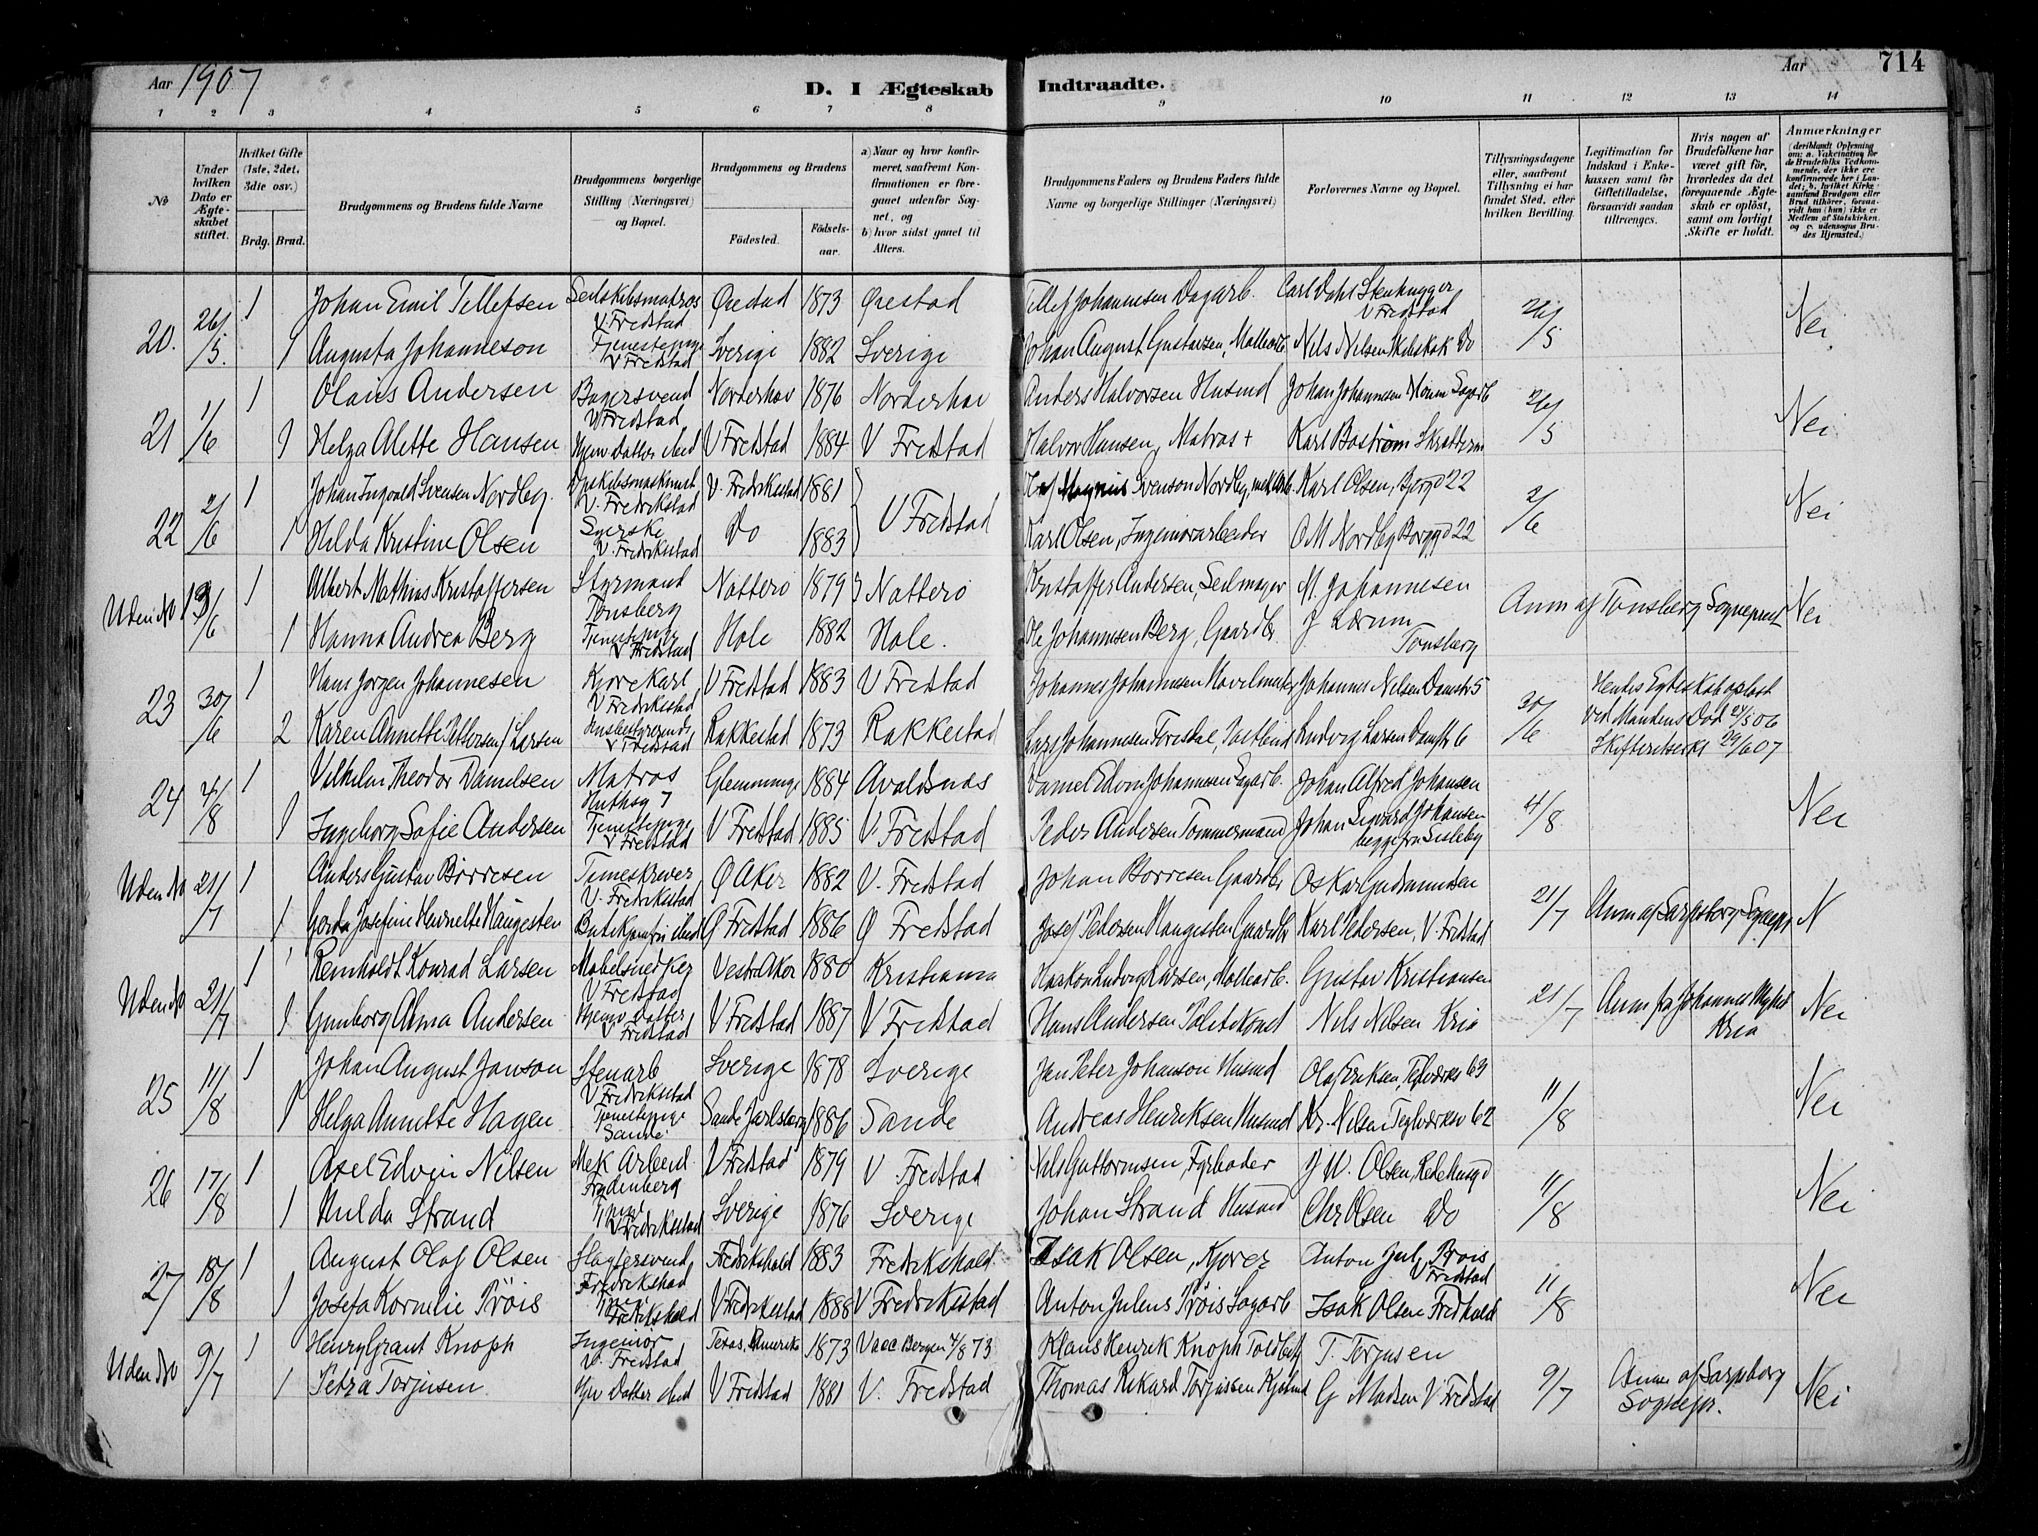 Aar 1907
D. I Ægteskab Indtraadte.
Aar 714
1 2 3 4 5 6 7 8 9 10 11 12 13 14
No
Under hvilken Dato er Ægteskabet stiftet.
Hvilket Gifte (1ste, 2det, 3die osv.)
Brdg. Brud.
Brudgommens og Brudens fulde Navne
Brudgommens borgerlige Stilling (Næringsvei) og Bopæl.
Brudgommens og Brudens
Fødested. Fødselsaar.
a) Naar og hvor konfirmeret, saafremt Konfirmationen er foregaaet udenfor Sognet, og
b) hvor sidst gaaet til Alters.
Brudgommens Faders og Brudens Faders fulde Navne og borgerlige Stillinger (Næringsvei)
Forlovernes Navne og Bopæl.
Tillysningsdagene eller, saafremt Tillysning ei har fundet Sted, efter hvilken Bevilling.
Legitimation for Indskud i Enkekassen samt for Giftetilladelse, forsaavidt saadan tiltrænges.
Hvis nogen af Brudefolkene har været gift før, hvorledes da det foregaaende Ægteskab er opløst, samt om lovligt Skifte er holdt.
Anmærkninger (deriblandt Oplysning om: a. Vakcination for de Brudefolks Vedkommende, der ikke ere konfirmerede her i Landet; b. hvilket Kirkesamfund Brudgom eller Brud tilhører, forsaavidt han (hun) ikke er Medlem af Statskirken, og c. udensogns Brudes Hjemsted.)
20. 26/5. 1 Johan Emil Tellefsen Seilskibsmatros V Fredstad Øiestad 1873 Øiestad Tellef Johannesen Dagarb. Carl Dahl Stenhugger V Fredstad 26/5 Nei
1 Augusta Johanneson Tjenestepige V Fredstad Sverige 1882 Sverige Johan August Gustavsen, Nils Nilsen Skibskok Do
21 1/6 1 Olaus Andersen Bagersvend V Fredstad Norderhov 1876 Norderhov Anders Halvorsen Husmd Johan Johannesen Sagarb 26/5 Nei
1 Helga Alette Hansen Hjemv Datter ibid V Fredstad 1884 V Fredstad Halvor Hansen, Matros + Karl Bostrøm Skrædderm
22 2/6 1 Johan Ingvald Svensen Nordby V. Fredrikstad V. Fredrikstad 1881 V Fredstad Magnus Svenson Nordby, mek Arb. Karl Olsen, 22 2/6 Nei
1 Hilda Kristine Olsen Syerske V. Fredrikstad Do 1883 Karl Olsen, Ingeniørarbeider O M Nordby 22
Uden No 13/6 1 Albert Mathias Kristoffersen Styrmand Tønsberg Nøtterø 1879 Nøtterø Kristoffer Andersen, Seilmager M. Johannesen Anm af Tønsberg Sogneprest Nei
1 Hanna Andrea Berg Tjenestepige V Fredstad Hole 1882 Hole. Ole Johannesen Berg, Gaardbr. J Lærum Tønsberg
23 30/6 1 Hans Jørgen Johannesen Kjørekarl V Fredrikstad V Fredstad 1883 V Fredstad Johannes Johannesen Høvelmester Johannes Nilsen Damstr 5 30/6 Hendes Egteskab opløst
2 Karen Annette Pettersen f Larsen Husbestyrerinde V Fredstad Rakkestad 1873 Rakkestad Lars Johannesen Ludvig Larsen Damstr 6 ved Mandens Død 24/5 06 29/6 07
24 4/8 1 Vilhelm Theodor Danielsen Matros 7 Glemminge 1884 Avaldsnæs Daniel Edvin Johannesen Sagarb. Johan Alfred Johansen 4/8 Nei
1 Ingeborg Sofie Andersen Tjenestepige V Fredstad V Fredstad 1885 V. Fredstad Peder Andersen Tømmermand Johan Sigvard Johansen begge fra Lisleby
Uden No 21/7 1 Anders Gustav Børresen V. Fredrikstad Ø Aker 1882 V. Fredstad Johan Børresen Gaardbr Oskar Gudmundsen 21/7 Anm af Sarpsborg Sognepr N
1 Gerda Josefine Haugesten Butikjomfru ibid Ø Fredstad 1886 Ø Fredstad Josef Pedersen Haugesten Gaardbr Karl Pedersen, V. Fredstad
Uden No 21/7 1 Reinholdt Konrad Larsen Møbelsnedker V Fredstad Vestre Aker 1880 Kristiania Haakon Ludvig Larsen, Gustav Kristiansen 21/7 Anm fra Johannes Kria Nei
1 Gunborg Alma Andersen Hjemv Datter V Fredstad V Fredstad 1887 V Fredstad Hans Andersen Politikonst Nils Nilsen Kria
25 11/8 1 Johan August Janson Stenarb V Fredrikstad Sverige 1878 Sverige Jan Peter Johanson Husmd Olaf Eriksen, Teglværkv 63 11/8 Nei
1 Helga Annette Hagen Tjenestepige Sande Sande Jarlsberg 1886 Sande Andreas Henriksen Husmd Kr. Nilsen Teglværksv 62
26 17/8 1 Axel Edvin Nilsen Mek Arbeid. Frydenberg V Fredstad 1879 V Fredstad Nils Guttormsen, Fyrbøder J W. Olsen, 11/8 Nei
1 Hulda Strand V Fredrikstad Sverige 1876 Sverige Johan Strand Husmd Chr Olsen Do
27 18/8 1 August Olaf Olsen Slagtersvend Fredrikshald Fredrikshald 1883 Fredrikshald Isak Olsen, Kjører Anton Jul. Prøis V Fredstad 11/8 Nei
1 Josefa Kornelie Prøis Fredrikshald V Fredrikstad 1888 V Fredrikstad Anton Julius Prøis Sagarb Isak Olsen Fredhald
Uden No 9/7 1 Henry Grant Knoph Ingeniør V. Fredstad Texas, Amerika 1873 Vacc Bergen 4/8 73 Klaus Henrik Knoph Toldbetj T. Torjusen 9/7 Anm af Sarpsborg Sognepr. Nei
1 Petra Torjusen Hjv Datter ibid V Fredstad 1881 V. Fredstad Thomas Rikard Torjussen G Madsen V Fredstad